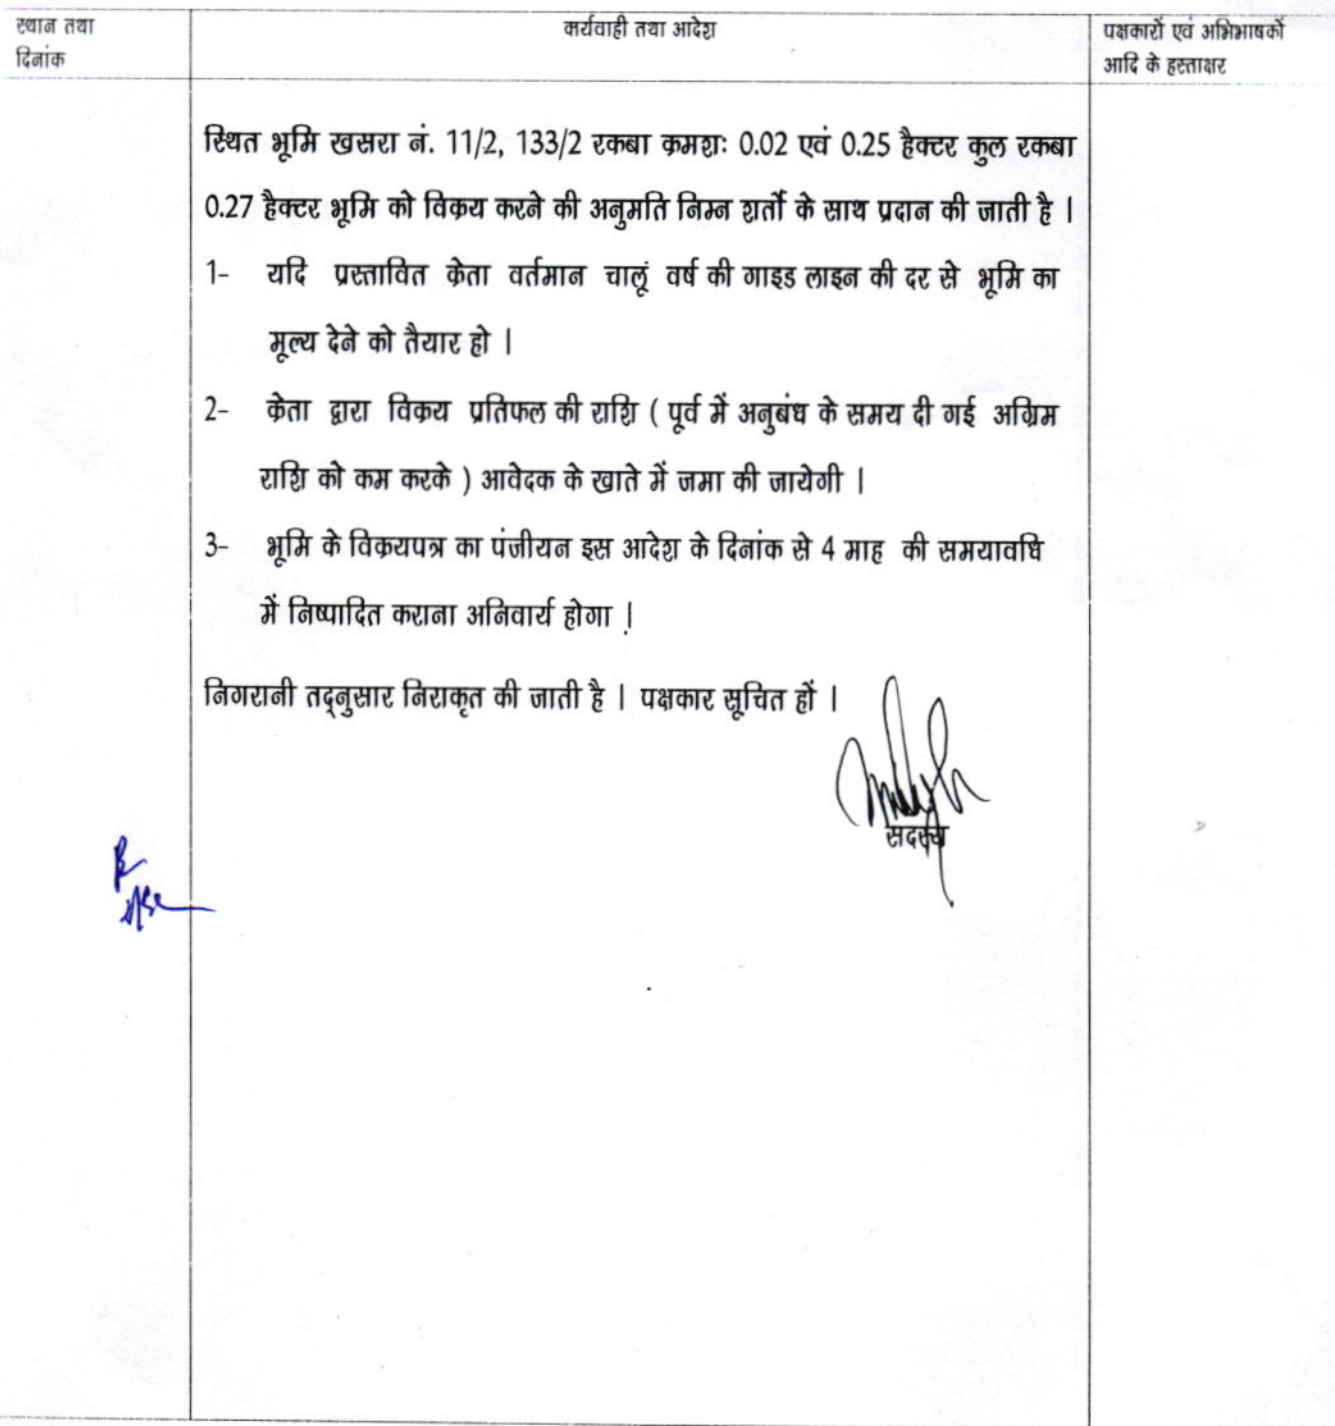 स्थान तथा
दिनांक
कार्यवाही तथा आदेश
पक्षकारों एवं अभिभाषकों
आदि के हस्ताक्षर
स्थित भूमि खसरा नं. 11/2, 133/2 रकबा क्रमशः 0.02 एवं 0.25 हैक्टर कुल रकबा
0.27 हैक्टर भूमि को विक्रय करने की अनुमति निम्न शर्तो के साथ प्रदान की जाती है ।
1- यदि प्रस्तावित क्रेता वर्तमान चालूं वर्ष की गाइड लाइन की दर से भूमि का
मूल्य देने को तैयार हो ।
2- क्रेता द्वारा विक्रय प्रतिफल की राशि ( पूर्व में अनुबंध के समय दी गई अग्रिम
राशि को कम करके ) आवेदक के खाते में जमा की जायेगी ।
3- भूमि के विक्रयपत्र का पंजीयन इस आदेश के दिनांक से 4 माह की समयावधि
में निष्पादित कराना अनिवार्य होगा ।
निगरानी तद्नुसार निराकृत की जाती है । पक्षकार सूचित हों ।
सदस्य